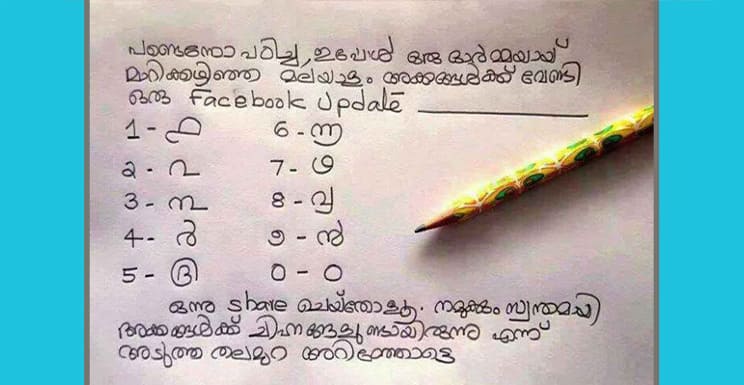 പണ്ടെന്നോ പഠിച്ച, ഇപ്പോൾ ഒരു ഓർമ്മയായ്
മാറിക്കഴിഞ്ഞ മലയാളം അക്കങ്ങൾക്ക് വേണ്ടി
ഒരു Facebook Update
1 - ൧ 6 - ൬
2 - ൨ 7 - ൭
3 - ൩ 8 - ൮
4 - ൪ 9 - ൯
5 - ൫ 0 - ൦
ഒന്നു share ചെയ്തോളൂ. നമുക്കും സ്വന്തമായി
അക്കങ്ങൾക്ക് ചിഹ്നങ്ങളുണ്ടായിരുന്നു എന്ന്
അടുത്ത തലമുറ അറിഞ്ഞോട്ടെ